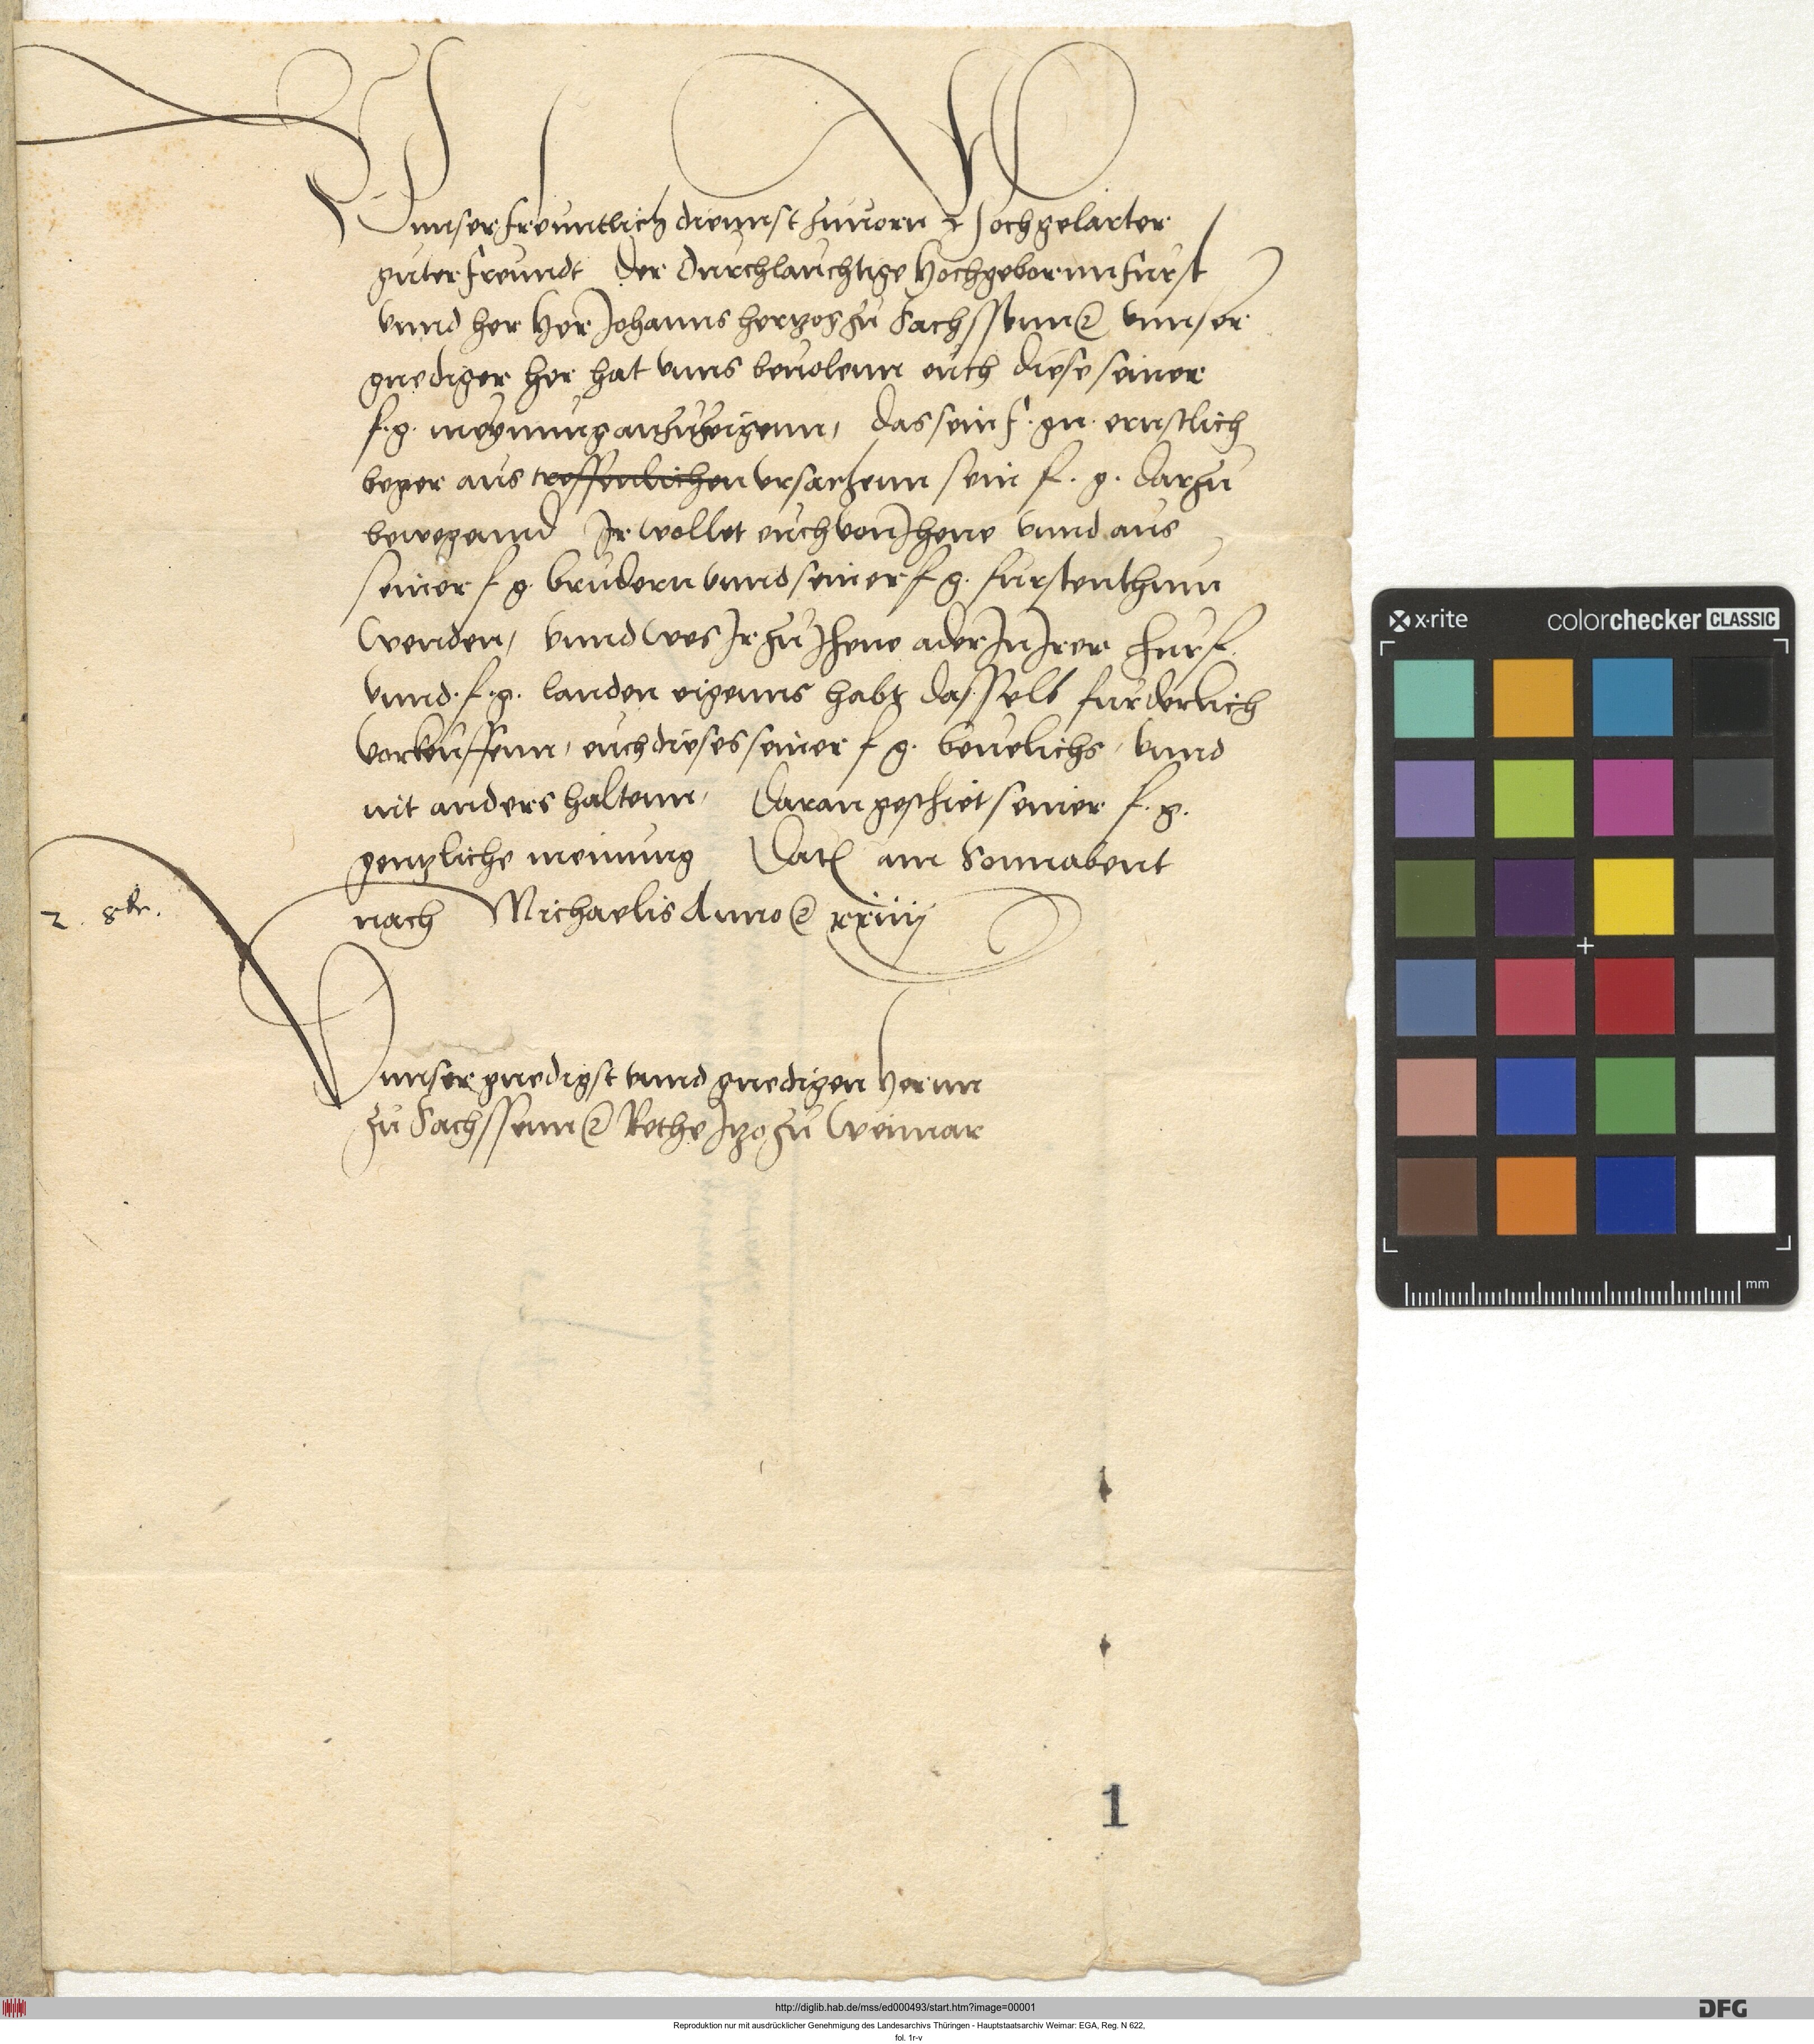 Vnnser freuntlich dienst zuuorn Hochgelarter
guter freundt Der Durchlauchtige Hochgebornn furst
vnnd her Her Johanns hertzog zu Sachssenn ꝛc vnnser
gnediger her hat vnns beuolenn euch diese seiner
f. g. meynung anzuzeigenn, das sein f. gn. ernstlich
beger aus treffenlichen vrsachenn sein f. g. darzu
bewegennd Ir wollet euch von Jhene vnnd aus
seiner f g. brudern vnnd seiner f g. furstenthum
wenden, vnnd wes Ir zu Jhene ader In Irer churf.
vnnd. f. g. landen eigenns habt dasselb furderlich
vorkeuffenn, euch dieses seiner f g. beuelichs, vnnd
nit anders haltenn, Daran geschiet seiner f. g.
gentzliche meinung Dat am Sonnabent
nach Michaelis Anno ꝛc xxiiij
2. 8br.
Vnnser gnedigst vnnd gnedigen Hernn
zu Sachssenn ꝛc Rethe Itzo zu Weimar
1
x·rite colorchecker CLASSIC
mm
http://diglib.hab.de/mss/ed000493/start.htm?image=00001
DFG
Reproduktion nur mit ausdrücklicher Genehmigung des Landesarchivs Thüringen - Hauptstaatsarchiv Weimar: EGA, Reg. N 622,
fol. 1r-v